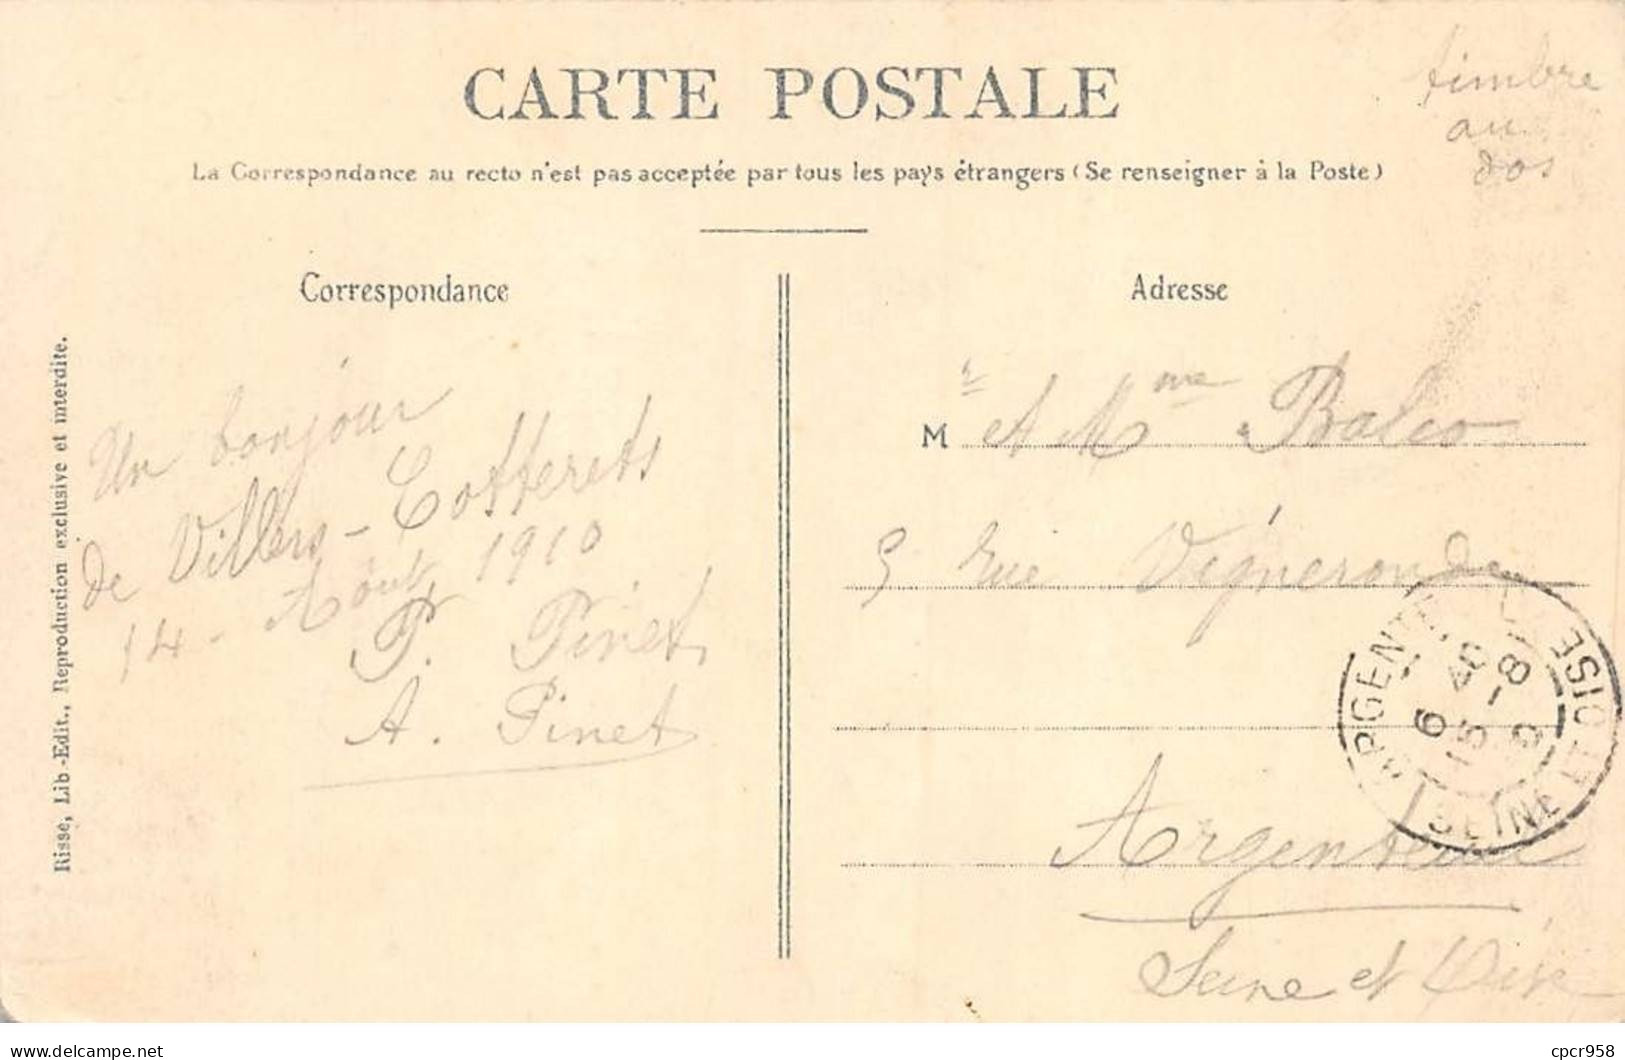 CARTE POSTALE
timbre
au
dos
La Correspondance au recto n'est pas acceptée par tous les pays étrangers (Se renseigner à la Poste)
Correspondance
Un bonjour
de Villers-Cotterets
14 - Août 1910
P. Pinet
A. Pinet
Risse, Lib.-Edit., Reproduction exclusive et interdite.
Adresse
M r et Mme
rue
Argenteuil
Seine et Oise
ARGENTEUIL
6
15 - 8
10
SEINE ET OISE
cpcr958